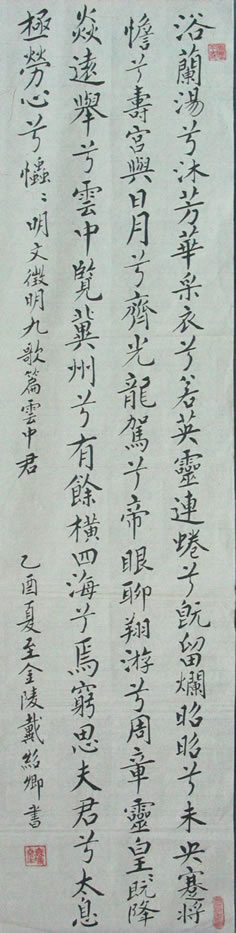 浴蘭湯兮沐芳華采衣兮若英靈連蜷兮既留爛昭昭兮未央蹇將
憺兮壽宮與日月兮齊光龍駕兮帝眼聊翔游兮周章靈皇既降
猋遠舉兮雲中覽冀州兮有餘橫四海兮焉窮思夫君兮太息
極勞心兮忡忡明文徵明九歌篇雲中君
乙酉夏至金陵戴紹卿書